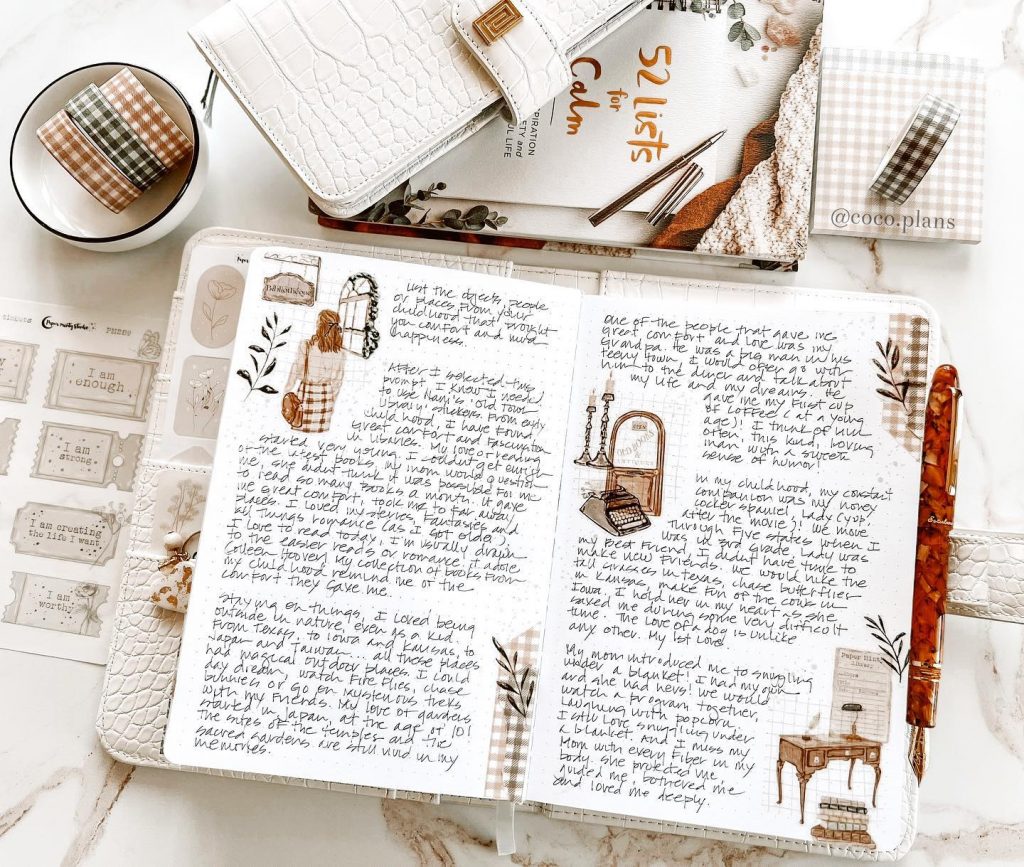 52 Lists
for
Calm
INSPIRATION
ANXIETY and
FUL LIFE
@coco.plans
PM289
I am
enough
I am
strong
I am creating
the life I want
I am
worthy
Bibliothèque
List the objects, people
or places from your
childhood that brought
you comfort and
happiness.
After I selected this
prompt, I knew I needed
to use Nani's "old town
library" stickers. From early
childhood, I have found
great comfort and fascination
in libraries. My love of reading
started very young. I couldn't get enough
of the latest books, my mom would question
me, she didn't think it was possible for me
to read so many books a month. It gave
me great comfort, took me to far away
places. I loved mysteries, fantasies and
all things romance (as I got older).
I love to read today, I'm usually drawn
to the easier reads or romance, I adore
Colleen Hoover! My collection of books from
my childhood remind me of the
comfort they gave me.
Staying on things, I loved being
outside in nature, even as a kid.
From Texas, to Iowa and Kansas, to
Japan and Taiwan... all these places
had magical outdoor places I could
day dream, watch fire flies, chase
bunnies or go on mysterious treks
with my friends. My love of gardens
started in Japan, at the age of 10!
The sites of the temples and the
sacred gardens are still vivid in my
memories.
One of the people that gave me
great comfort and love was my
Grandpa. He was a big man in his
teeny town. I would often go with
him to the diner and talk about
my life and my dreams. He
gave me my first cup
of coffee (at a young
age)! I think of him
often, this kind, loving
man with a sweet
sense of humor!
In my childhood, my constant
companion was my honey
cocker spaniel, Lady (yup,
after the movie)! We move
through five states when I
was in 3rd grade, Lady was
my best friend, I didn't have time to
make new friends. We would hike the
tall grasses in Texas, chase butterflies
in Kansas, make fun of the cows in
Iowa. I hold her in my heart as she
saved me during some very difficult
time. The love of a dog is unlike
any other. My 1st love!
My mom introduced me to snuggling
under a blanket! I had my own
and she had hers! We would
watch a program together,
laughing with popcorn.
I still love snuggling under
a blanket. And I miss my
Mom with every fiber in my
body. She protected me,
guided me, bothered me
and loved me deeply.
OPEN
Paper Mint
Library